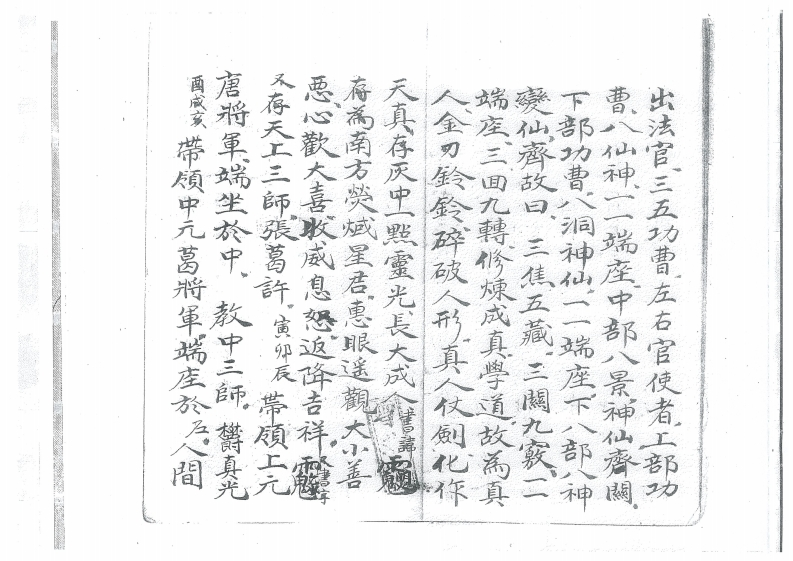 出法官、三五功曹、左右官使者、上部功
曹、八仙神、一一端座、中部八景、神仙齊關、
下部功曹、八洞神仙、一一端座、下八部八神
變仙、齊故曰、三焦五藏、三關九竅、一一
端座、三回九轉修煉成真、學道故為真
人、金刃鈴鈴、碎破人形、真人仗劍化作
天真、存灰中一點靈光、長大成人 書諱
存為南方熒惑星君、惠眼遙觀、大小善
惡、心歡大喜、收威息怒、返降吉祥、
又存天上三師、張葛許、寅卯辰 帶領上元
唐將軍、端坐於中、教中三師、欝真光
酉戌亥 帶領中元葛將軍、端座於左。人間